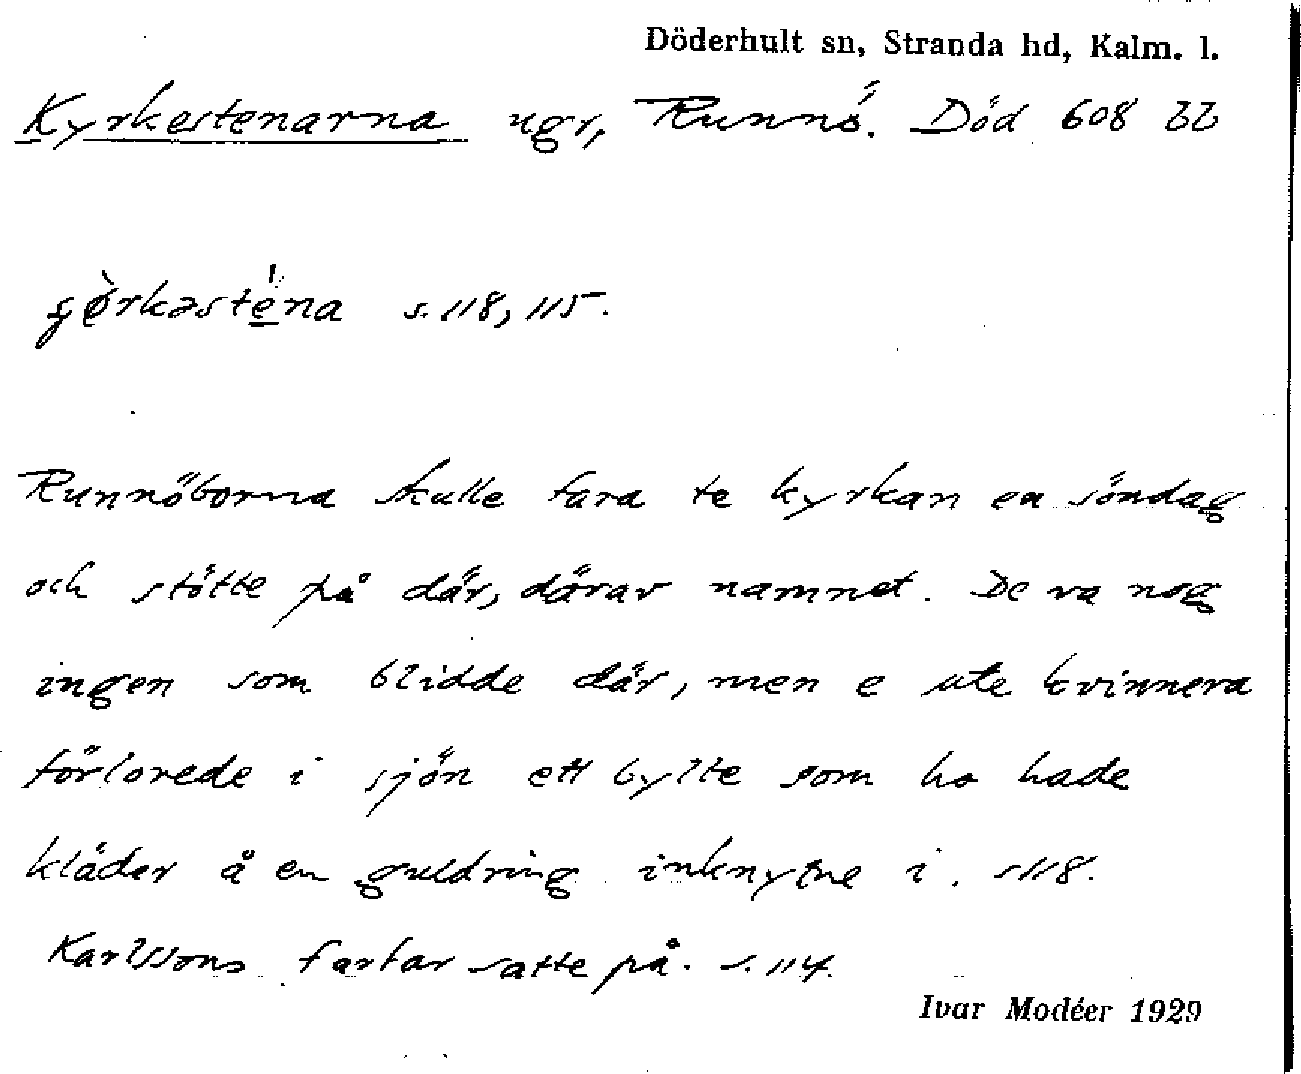 Döderhult sn, Stranda hd, Kalm. l.
Kyrkestenarna ugr, Runnö. Död 608 bb
s. 118, 115.
Runnöborna skulle fara te kyrkan en söndag
och stötte på där, därav namnet. De va nog
ingen som blidde där, men e ute kvinnera
förlorede i sjön ett bylte som ho hade
kläder å en guldring inknytne i. s 118.
Karlssons farfar satte på. s. 114.
Ivar Modéer 1929